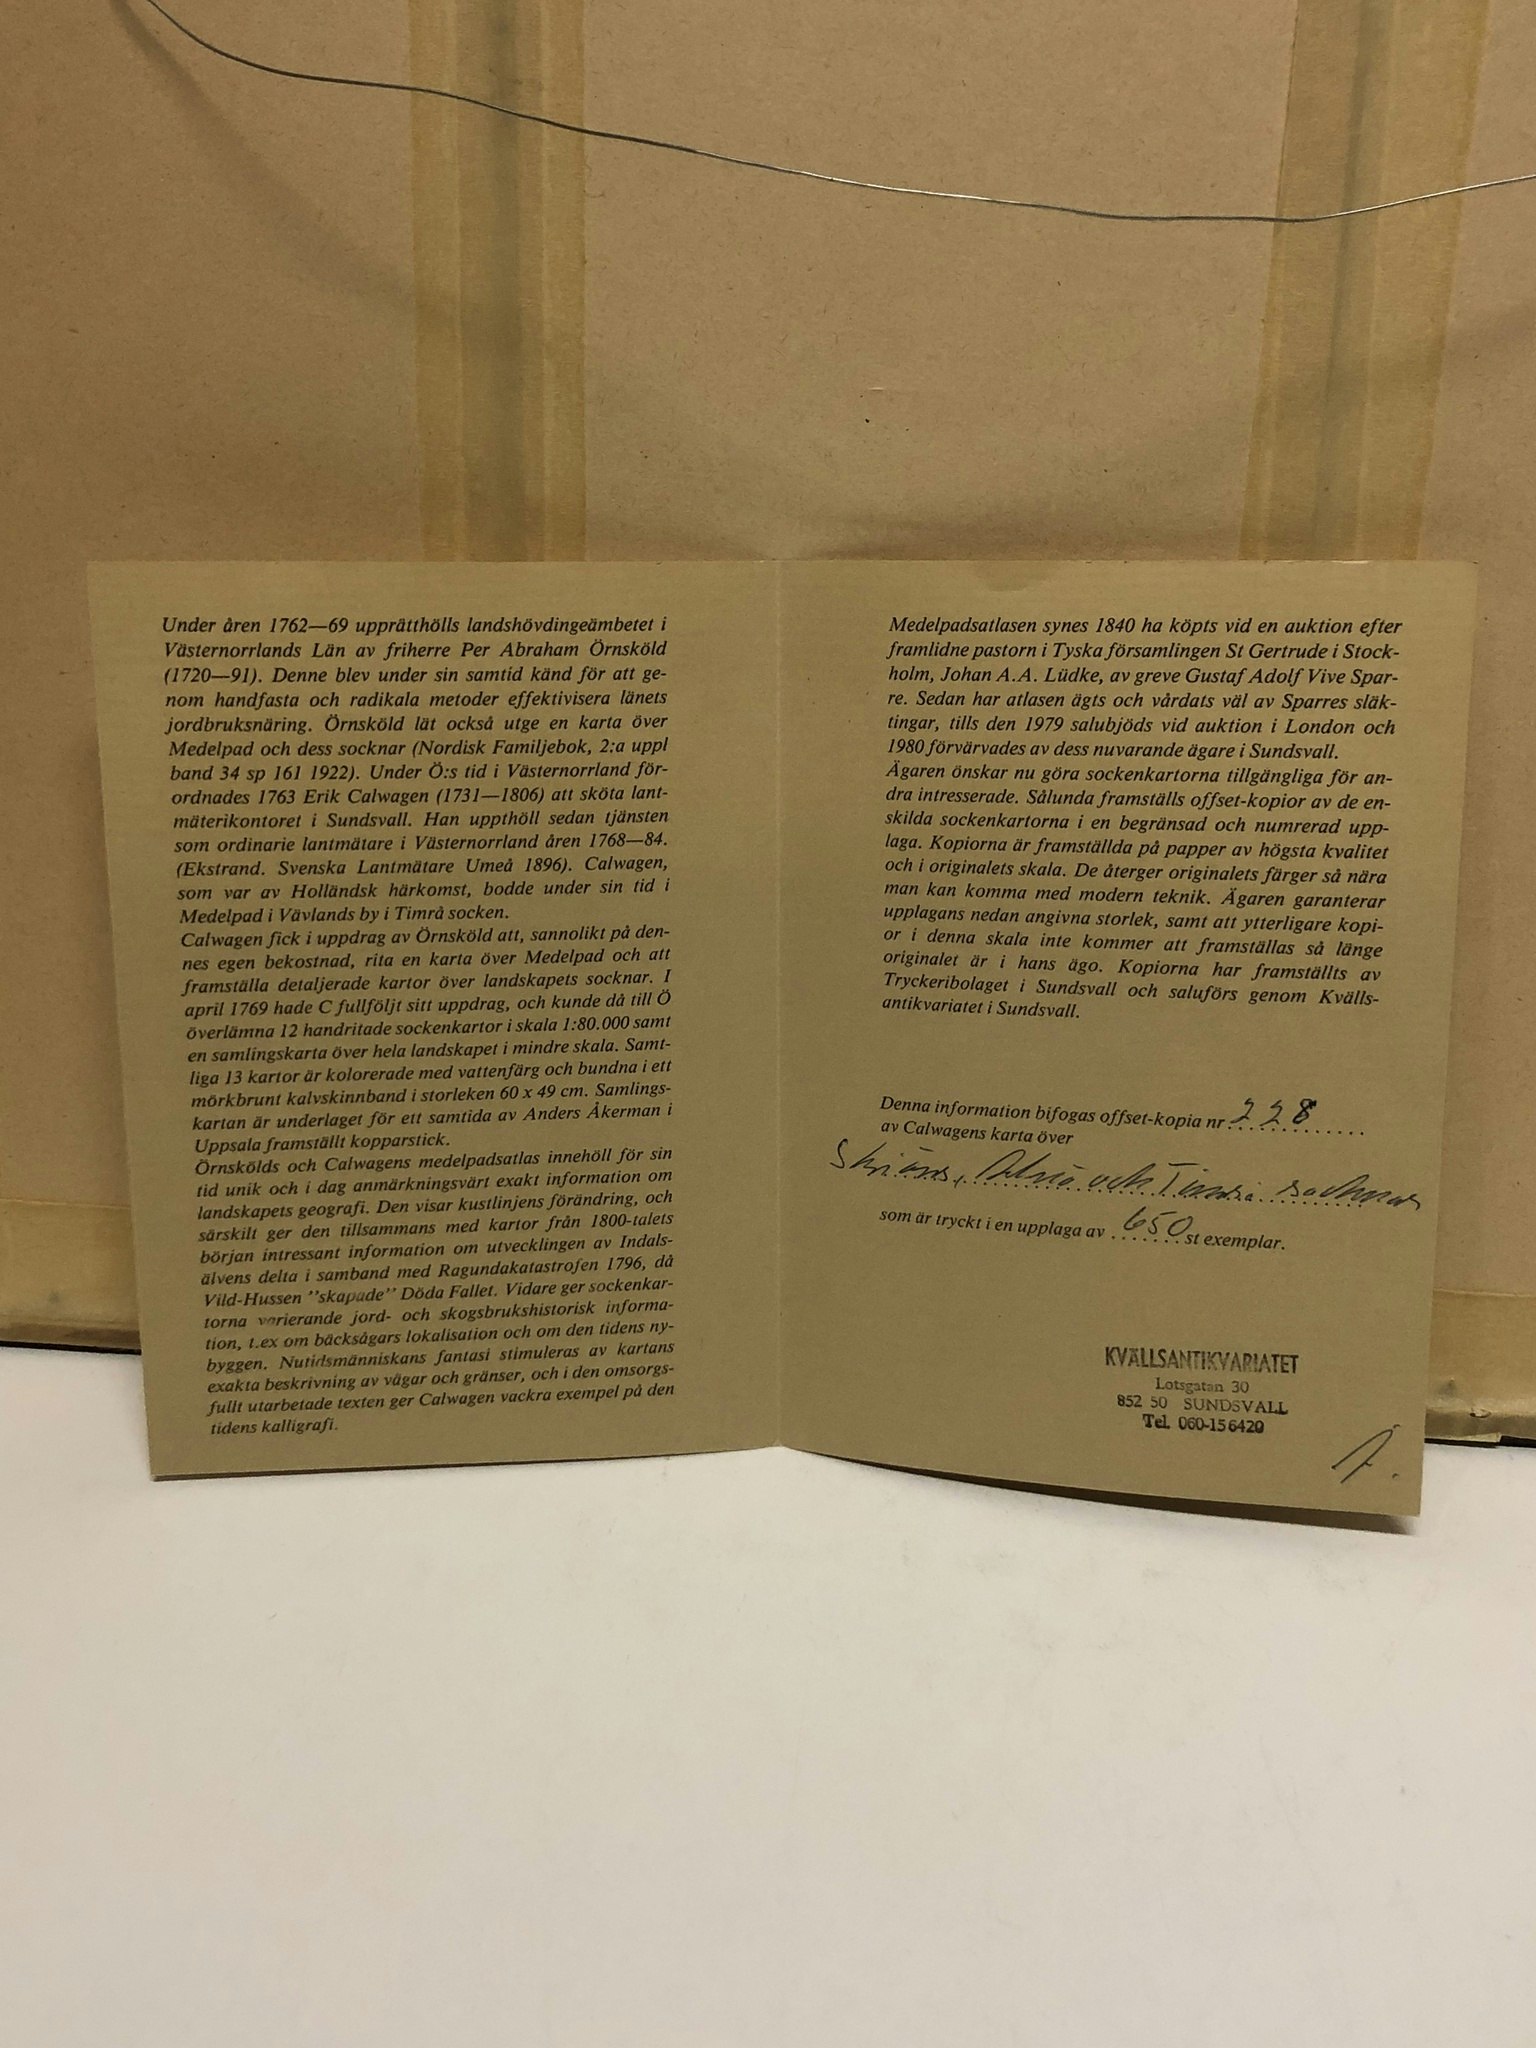 Under åren 1762—69 upprätthölls landshövdingeämbetet i
Västernorrlands Län av friherre Per Abraham Örnsköld
(1720—91). Denne blev under sin samtid känd för att ge-
nom handfasta och radikala metoder effektivisera länets
jordbruksnäring. Örnsköld lät också utge en karta över
Medelpad och dess socknar (Nordisk Familjebok, 2:a uppl
band 34 sp 161 1922). Under Ö:s tid i Västernorrland för-
ordnades 1763 Erik Calwagen (1731—1806) att sköta lant-
mäterikontoret i Sundsvall. Han uppthöll sedan tjänsten
som ordinarie lantmätare i Västernorrland åren 1768—84.
(Ekstrand. Svenska Lantmätare Umeå 1896). Calwagen,
som var av Holländsk härkomst, bodde under sin tid i
Medelpad i Vävlands by i Timrå socken.
Calwagen fick i uppdrag av Örnsköld att, sannolikt på den-
nes egen bekostnad, rita en karta över Medelpad och att
framställa detaljerade kartor över landskapets socknar. I
april 1769 hade C fullföljt sitt uppdrag, och kunde då till Ö
överlämna 12 handritade sockenkartor i skala 1:80.000 samt
en samlingskarta över hela landskapet i mindre skala. Samt-
liga 13 kartor är kolorerade med vattenfärg och bundna i ett
mörkbrunt kalvskinnband i storleken 60 x 49 cm. Samlings-
kartan är underlaget för ett samtida av Anders Åkerman i
Uppsala framställt kopparstick.
Örnskölds och Calwagens medelpadsatlas innehöll för sin
tid unik och i dag anmärkningsvärt exakt information om
landskapets geografi. Den visar kustlinjens förändring, och
särskilt ger den tillsammans med kartor från 1800-talets
början intressant information om utvecklingen av Indals-
älvens delta i samband med Ragundakatastrofen 1796, då
Vild-Hussen ”skapade” Döda Fallet. Vidare ger sockenkar-
torna varierande jord- och skogsbrukshistorisk informa-
tion, t.ex om bäcksågars lokalisation och om den tidens ny-
byggen. Nutidsmänniskans fantasi stimuleras av kartans
exakta beskrivning av vägar och gränser, och i den omsorgs-
fullt utarbetade texten ger Calwagen vackra exempel på den
tidens kalligrafi.
Medelpadsatlasen synes 1840 ha köpts vid en auktion efter
framlidne pastorn i Tyska församlingen St Gertrude i Stock-
holm, Johan A.A. Lüdke, av greve Gustaf Adolf Vive Spar-
re. Sedan har atlasen ägts och vårdats väl av Sparres släk-
tingar, tills den 1979 salubjöds vid auktion i London och
1980 förvärvades av dess nuvarande ägare i Sundsvall.
Ägaren önskar nu göra sockenkartorna tillgängliga för an-
dra intresserade. Sålunda framställs offset-kopior av de en-
skilda sockenkartorna i en begränsad och numrerad upp-
laga. Kopiorna är framställda på papper av högsta kvalitet
och i originalets skala. De återger originalets färger så nära
man kan komma med modern teknik. Ägaren garanterar
upplagans nedan angivna storlek, samt att ytterligare kopi-
or i denna skala inte kommer att framställas så länge
originalet är i hans ägo. Kopiorna har framställts av
Tryckeribolaget i Sundsvall och saluförs genom Kvälls-
antikvariatet i Sundsvall.
Denna information bifogas offset-kopia nr 228
av Calwagens karta över
Skööns, Alnö och Timrå socknar
som är tryckt i en upplaga av 650 st exemplar.
KVÄLLSANTIKVARIATET
Lotsgatan 30
852 50 SUNDSVALL
Tel. 060-156420